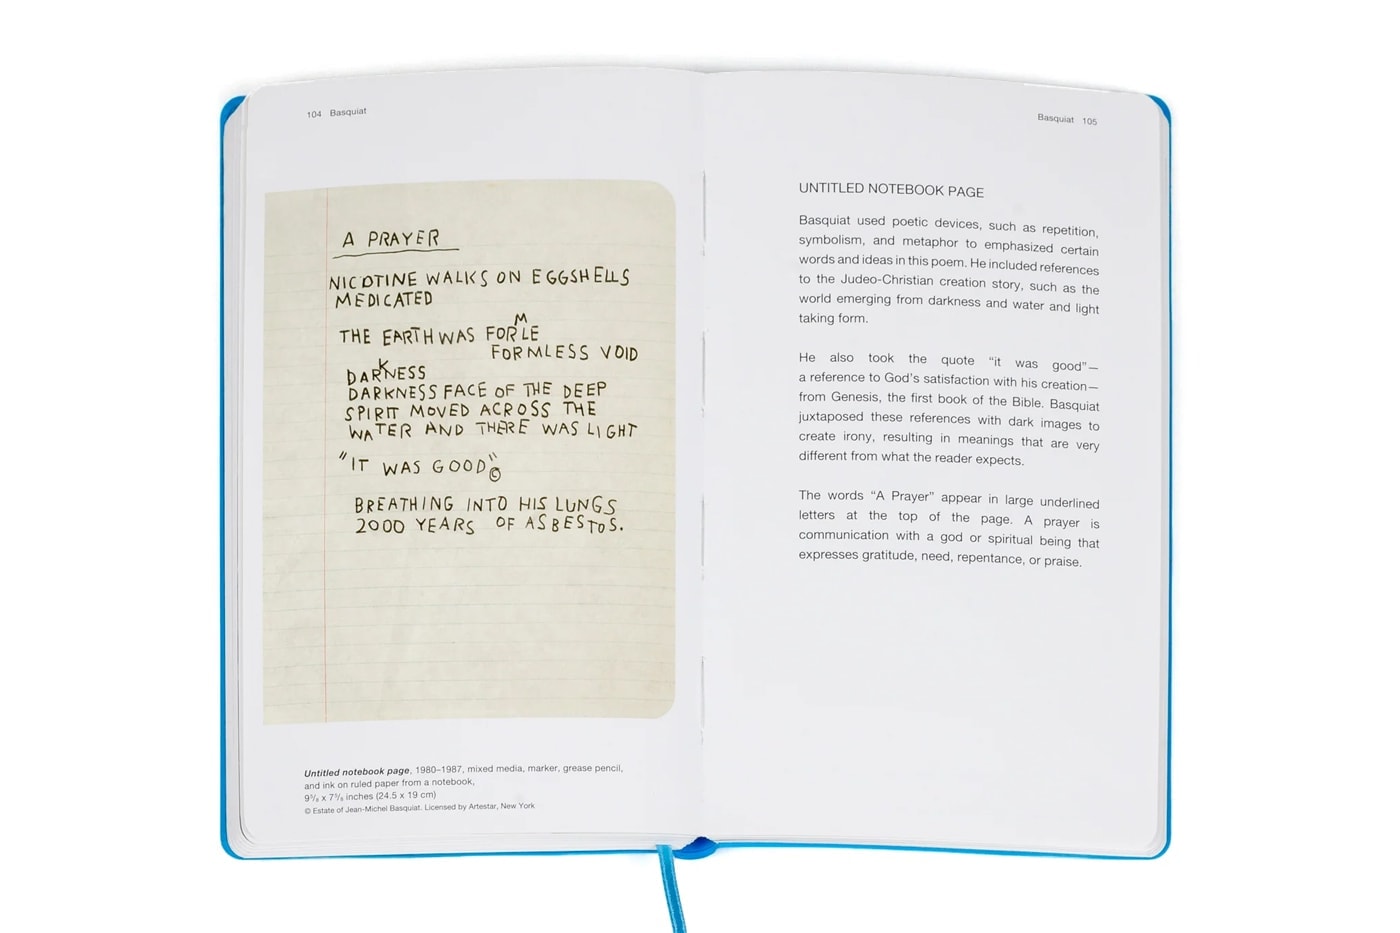 104 Basquiat
A PRAYER
NICOTINE WALKS ON EGGSHELLS
MEDICATED
M
THE EARTH WAS FORLE
FORMLESS VOID
DARKNESS
DARKNESS FACE OF THE DEEP
SPIRIT MOVED ACROSS THE
WATER AND THERE WAS LIGHT
"IT WAS GOOD"©
BREATHING INTO HIS LUNGS
2000 YEARS OF ASBESTOS.
Untitled notebook page, 1980–1987, mixed media, marker, grease pencil,
and ink on ruled paper from a notebook,
9⁵/₈ x 7⁵/₈ inches (24.5 x 19 cm)
© Estate of Jean-Michel Basquiat. Licensed by Artestar, New York
Basquiat 105
UNTITLED NOTEBOOK PAGE
Basquiat used poetic devices, such as repetition,
symbolism, and metaphor to emphasized certain
words and ideas in this poem. He included references
to the Judeo-Christian creation story, such as the
world emerging from darkness and water and light
taking form.
He also took the quote “it was good”—
a reference to God’s satisfaction with his creation—
from Genesis, the first book of the Bible. Basquiat
juxtaposed these references with dark images to
create irony, resulting in meanings that are very
different from what the reader expects.
The words “A Prayer” appear in large underlined
letters at the top of the page. A prayer is
communication with a god or spiritual being that
expresses gratitude, need, repentance, or praise.